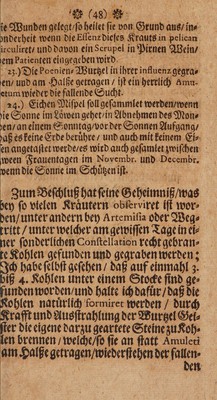 (48)
die Wunden gelegt/so heilet sie von Grund aus/ in-
sonderheit wenn die Essenz dieses Krauts in pelican
circuliret/ und davon ein Scrupel in Pirnen Wein/
dem Patienten eingegeben wird.
23.) Die Poenien-Wurtzel in ihrer influenz gegra-
ben/ und am Halße getragen/ ist ein herrlich Amu-
letum wieder die fallende Sucht.
24.) Eichen Mispel soll gesammlet werden/wenn
die Sonne im Löwen gehet/ in Abnehmen des Mon-
den/ an einem Sonntag/vor der Sonnen Aufgang/
daß es keine Erde berühre/ und auch mit keinem Ei-
sen angetastet werde/es wird auch gesamlet zwischen
zween Frauentagen im Novembr. und Decembr.
wenn die Sonne im Schützen ist.
Zum Beschluß hat seine Geheimniß/was
bey so vielen Kräutern observiret ist wor-
den/ unter andern bey Artemisia oder Weg-
tritt/ unter welcher am gewissen Tage in ei-
ner sonderlichen Constellation recht gebran-
te Kohlen gefunden und gegraben werden;
Ich habe selbst gesehen/ daß auf einmahl 3.
biß 4. Kohlen unter einem Stocke sind ge-
funden worden/und halte ich dafür/ daß die
Kohlen natürlich formiret werden/ durch
Krafft und Ausstrahlung der Wurtzel Gei-
ster die eigene darzu geartete Steine zu Koh-
len brennen/ welche/so sie an statt Amuleti
am Halße getragen/wiederstehen der fallen-
den